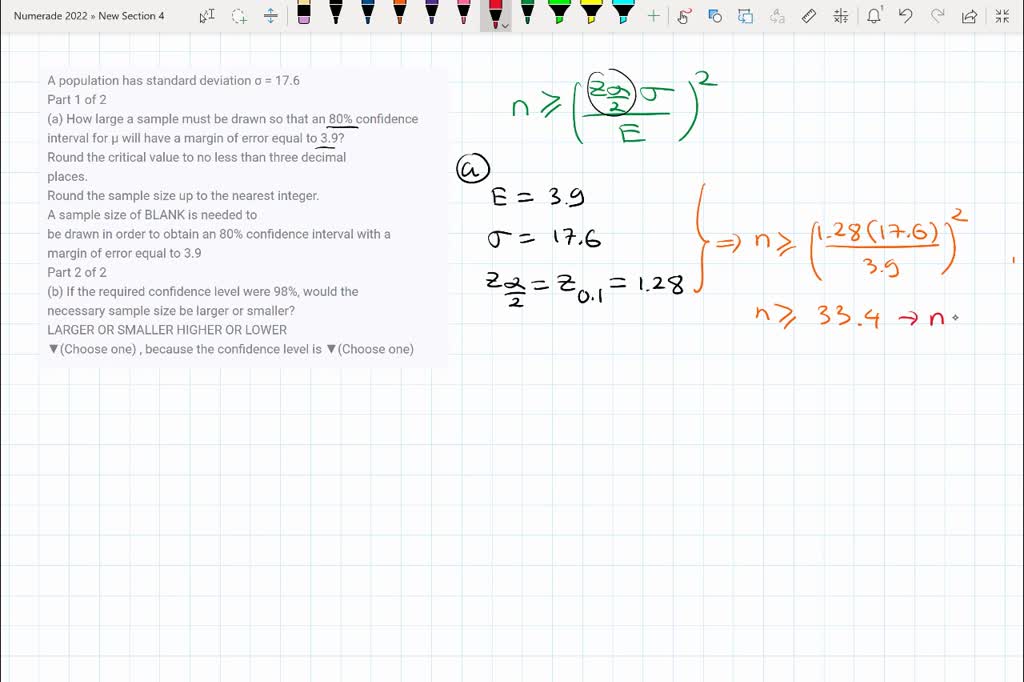 Numerade 2022 » New Section 4
A population has standard deviation σ = 17.6
Part 1 of 2
(a) How large a sample must be drawn so that an 80% confidence
interval for μ will have a margin of error equal to 3.9?
Round the critical value to no less than three decimal
places.
Round the sample size up to the nearest integer.
A sample size of BLANK is needed to
be drawn in order to obtain an 80% confidence interval with a
margin of error equal to 3.9
Part 2 of 2
(b) If the required confidence level were 98%, would the
necessary sample size be larger or smaller?
LARGER OR SMALLER HIGHER OR LOWER
▼(Choose one) , because the confidence level is ▼(Choose one)
n ≥ (z_{α/2} σ / E)^2
(a)
E = 3.9
σ = 17.6
z_{α/2} = z_{0.1} = 1.28
⇒ n ≥ (1.28(17.6) / 3.9)^2
n ≥ 33.4 → n